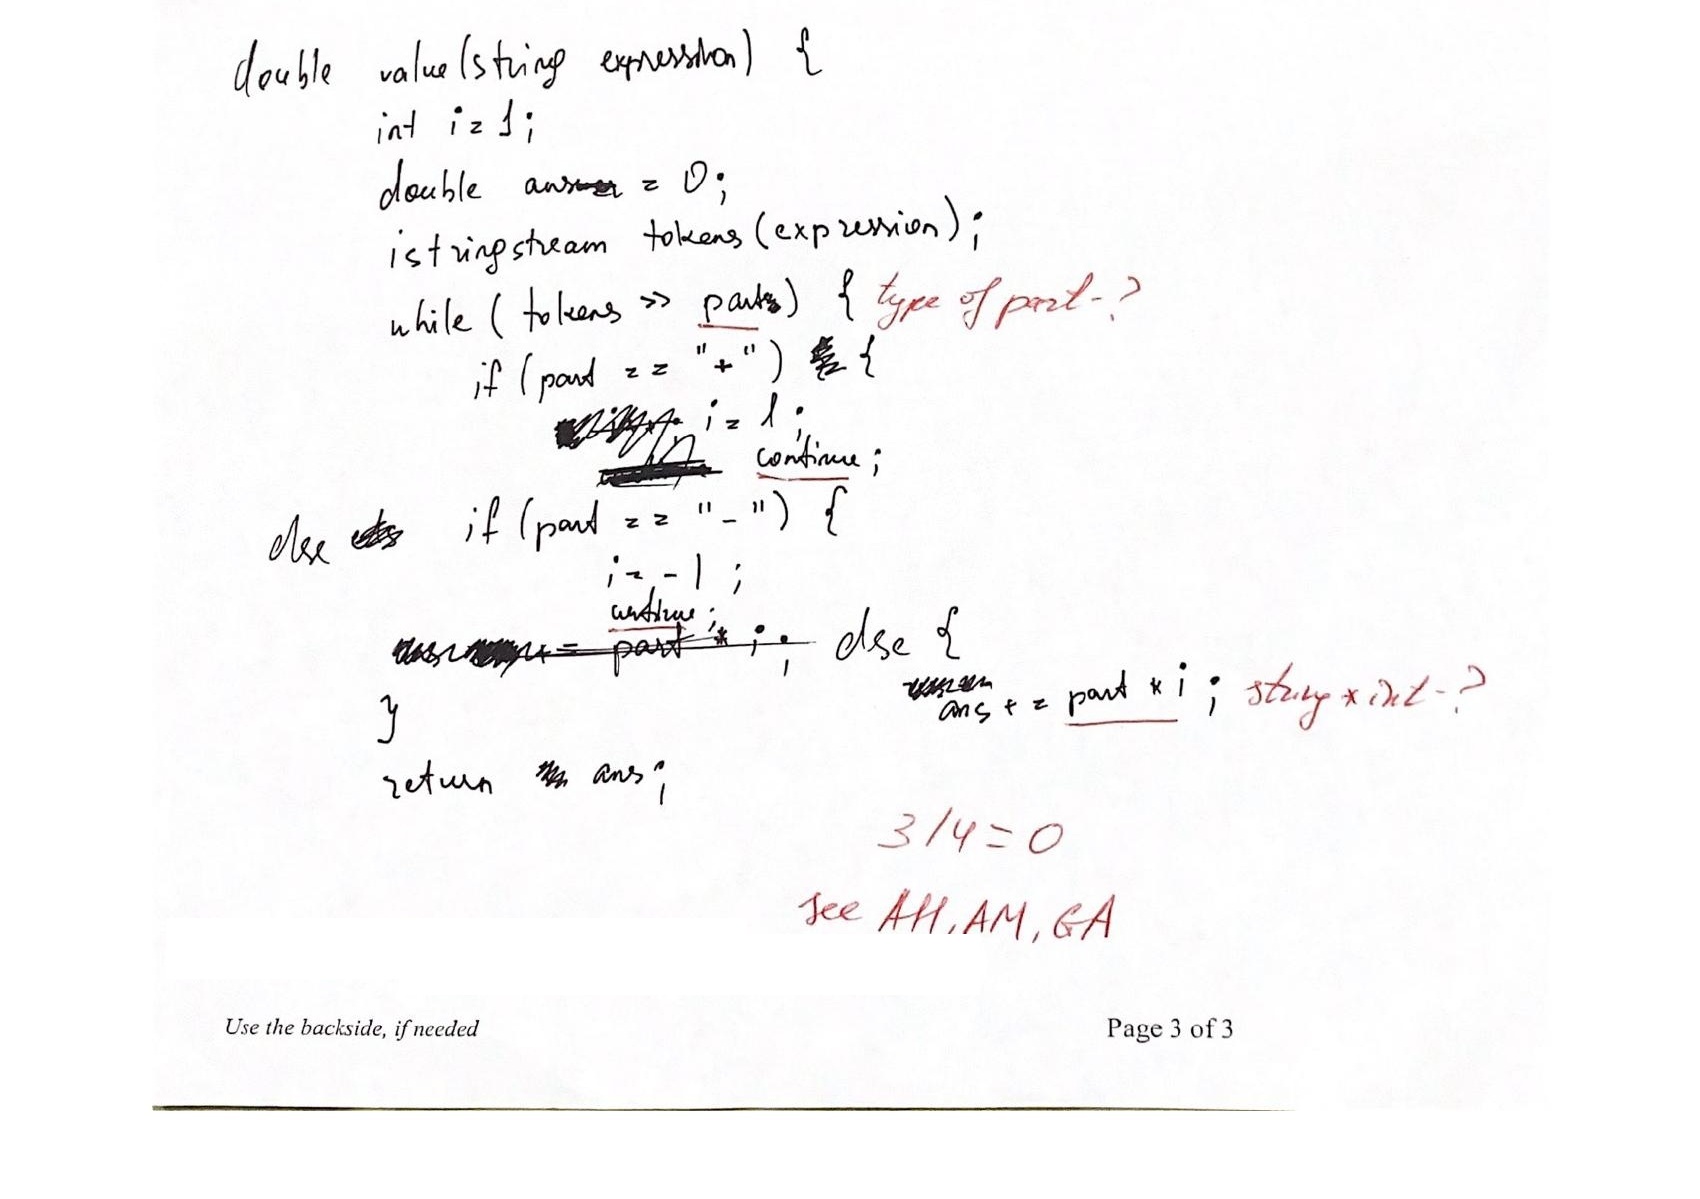 double value(string expression) {
int i = 1;
double ans = 0;
istringstream tokens(expression);
while ( tokens >> part) { type of part - ?
if (part == "+") {
i = 1;
continue;
else if (part == "-") {
i = -1;
continue;
part * i; else {
ans += part * i; string * int - ?
}
return ans;
3/4=0
see AH, AM, GA
Use the backside, if needed
Page 3 of 3